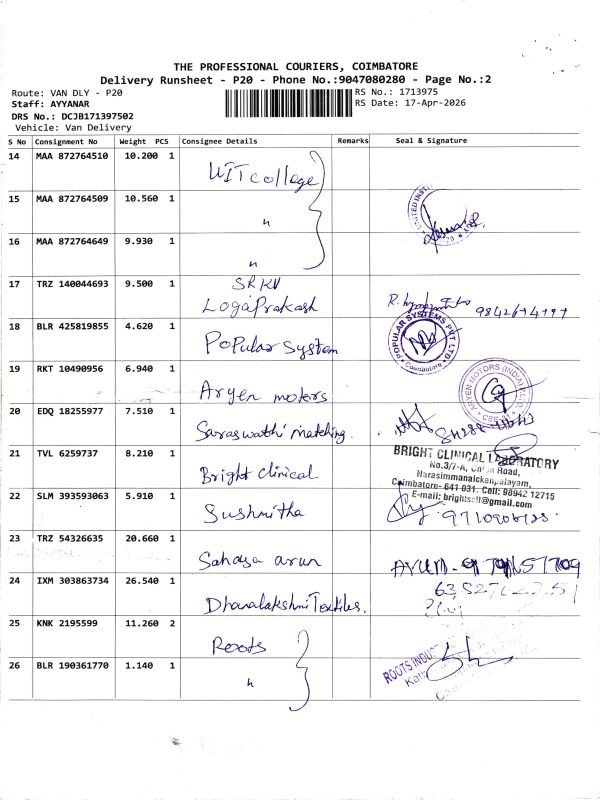 THE PROFESSIONAL COURIERS, COIMBATORE
Delivery Runsheet - P20 - Phone No.:9047080280 - Page No.:2
Route: VAN DLY - P20
RS No.: 1713975
Staff: AYYANAR
RS Date: 17-Apr-2026
DRS No.: DCJB171397502
Vehicle: Van Delivery
S No Consignment No Weight PCS Consignee Details Remarks Seal & Signature
14 MAA 872764510 10.200 1
UIT college
15 MAA 872764509 10.560 1
"
16 MAA 872764649 9.930 1
"
17 TRZ 140044693 9.500 1 SRKV
LogaPrakash
18 BLR 425819855 4.620 1
Popular System
POPULAR SYSTEMS PVT LTD
Coimbatore
19 RKT 10490956 6.940 1
Aryen motors
ARYEN MOTORS (INDIA) P LTD
20 EDQ 18255977 7.510 1
Saraswathi matching.
21 TVL 6259737 8.210 1
Bright clinical
BRIGHT CLINICAL LABORATORY
No.3/7-A, Union Road,
Narasimmanaickenpalayam,
Coimbatore- 641 031. Cell: 98942 12715
E-mail:
22 SLM 393593063 5.910 1
Sushmitha
23 TRZ 54326635 20.660 1
Sahaya arun
24 IXM 303863734 26.540 1
Dhanalakshmi Textiles.
25 KNK 2195599 11.260 2
Roots
26 BLR 190361770 1.140 1
"
ROOTS